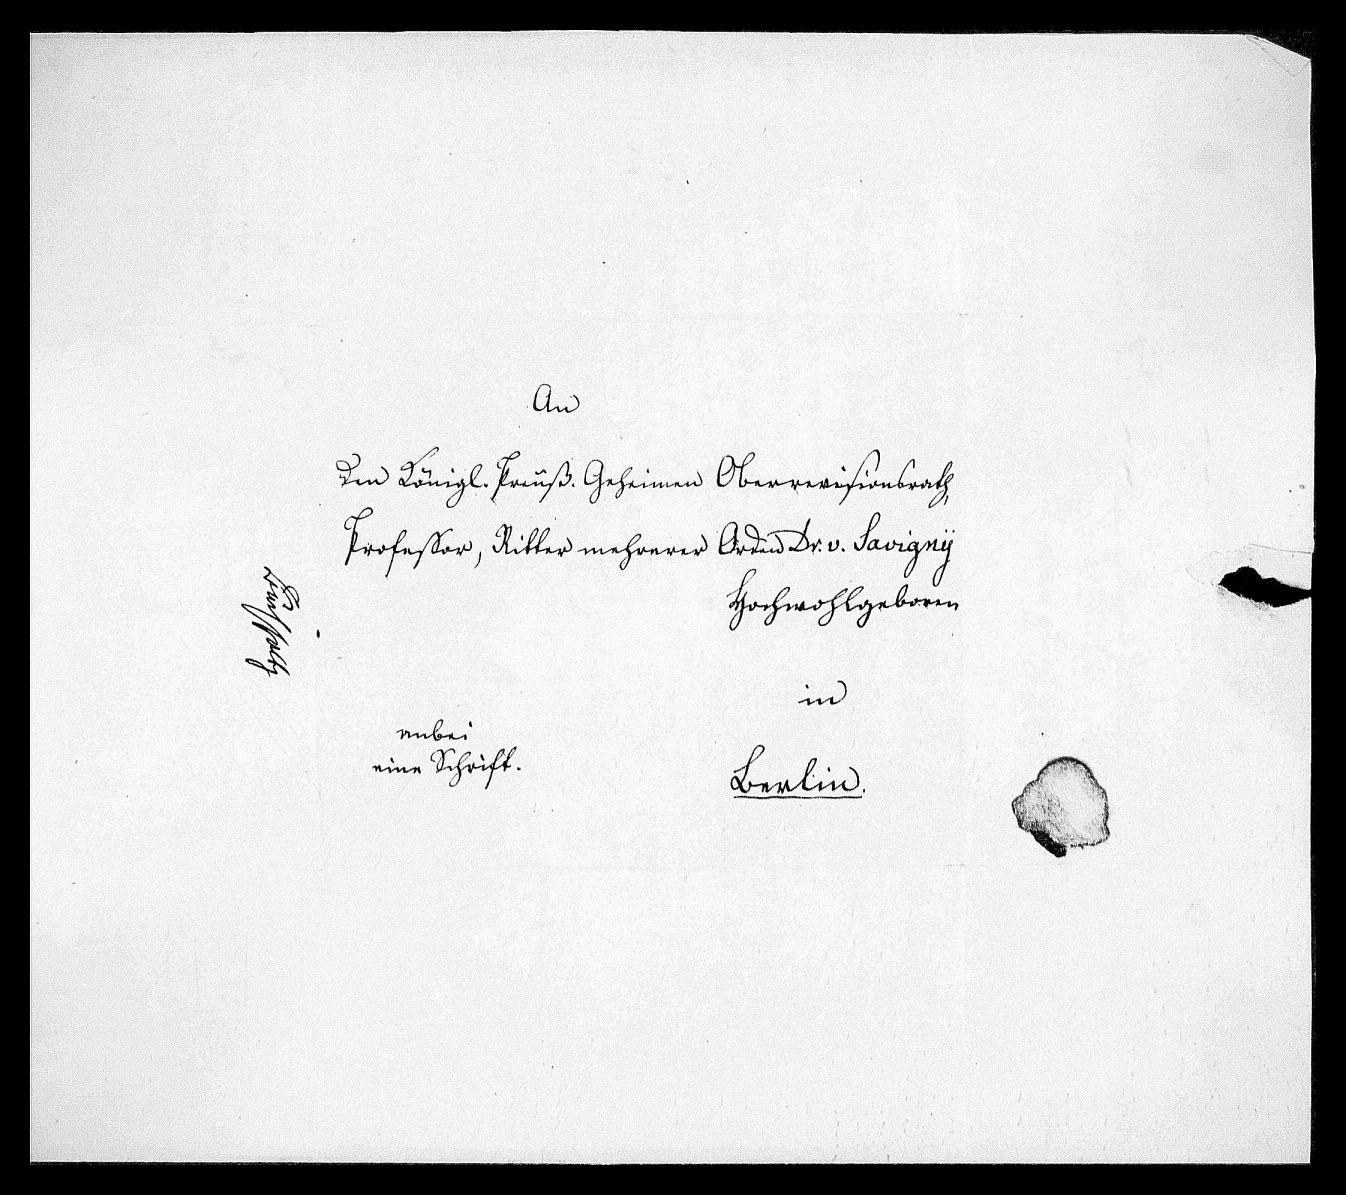 An
den Königl. Preuß. Geheimen Oberrevisionsrath,
Professor, Ritter mehrerer Orden Dr. v. Savigny
Hochwohlgeboren
in
Berlin.
anbei
eine Schrift.